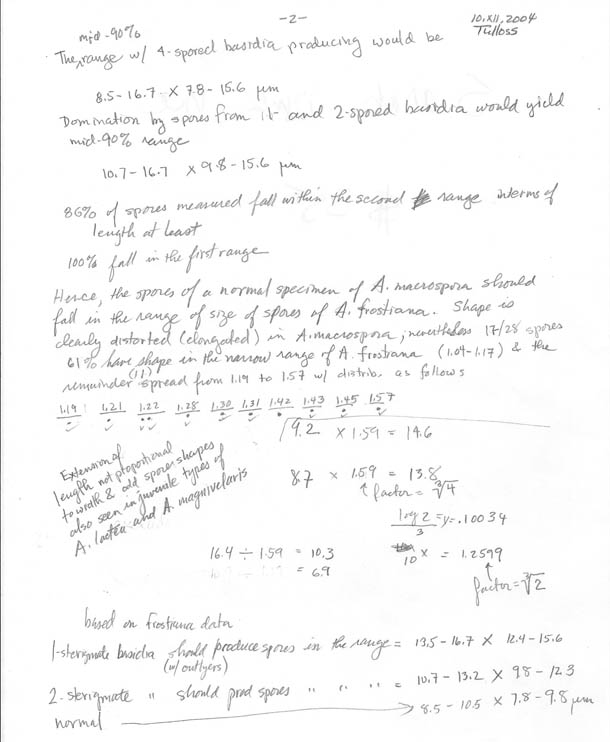 -2-
10.XII.2004
Tulloss
mid-90%
The range w/ 4-spored basidia producing would be
8.5-16.7 x 7.8-15.6 µm
Domination by spores from 1- and 2-spored basidia would yield
mid-90% range
10.7-16.7 x 9.8-15.6 µm
86% of spores measured fall within the second range in terms of
length at least
100% fall in the first range
Hence, the spores of a normal specimen of A. macrospora should
fall in the range of size of spores of A. frostiana. Shape is
clearly distorted (elongated) in A. macrospora; nevertheless 17/28 spores
61% have shape in the narrow range of A. frostiana (1.04-1.17) & the
remainder (11) spread from 1.19 to 1.57 w/ distrib. as follows
1.19 1.21 1.22 1.28 1.30 1.31 1.42 1.43 1.45 1.57
9.2 x 1.59 = 14.6
Extension of
length not proportional
to width & odd spore shapes
also seen in juvenile types of
A. lactea and A. magnivelaris
8.7 x 1.59 = 13.8
↑ factor = ∛4
log 2 / 3 = y = .10034
16.4 ÷ 1.59 = 10.3
= 6.9
10^x = 1.2599
↑
factor = ∛2
based on frostiana data
1-sterigmate basidia should produce spores in the range = 13.5-16.7 x 12.4-15.6
(w/ outlyers)
2-sterigmate " should prod spores " " " = 10.7-13.2 x 9.8-12.3
normal → 8.5-10.5 x 7.8-9.8 µm